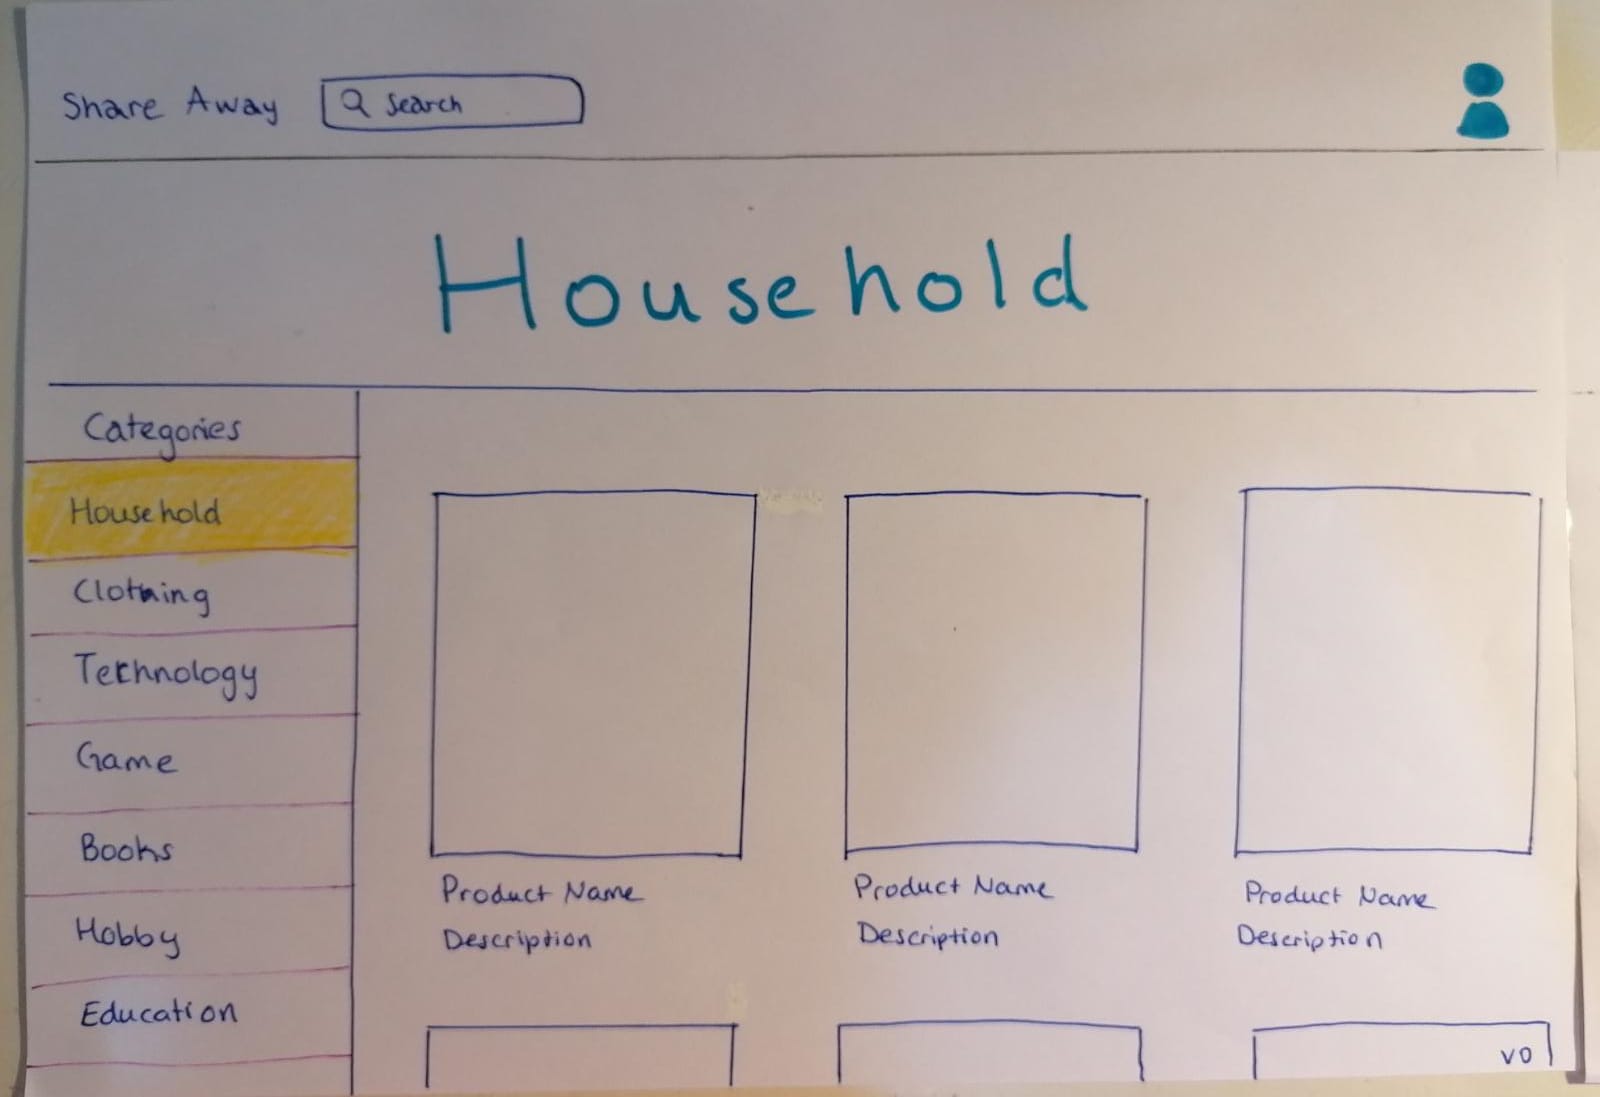 Share Away
Search
Household
Categories
Household
Clothing
Technology
Game
Books
Hobby
Education
Product Name
Description
Product Name
Description
Product Name
Description
VO